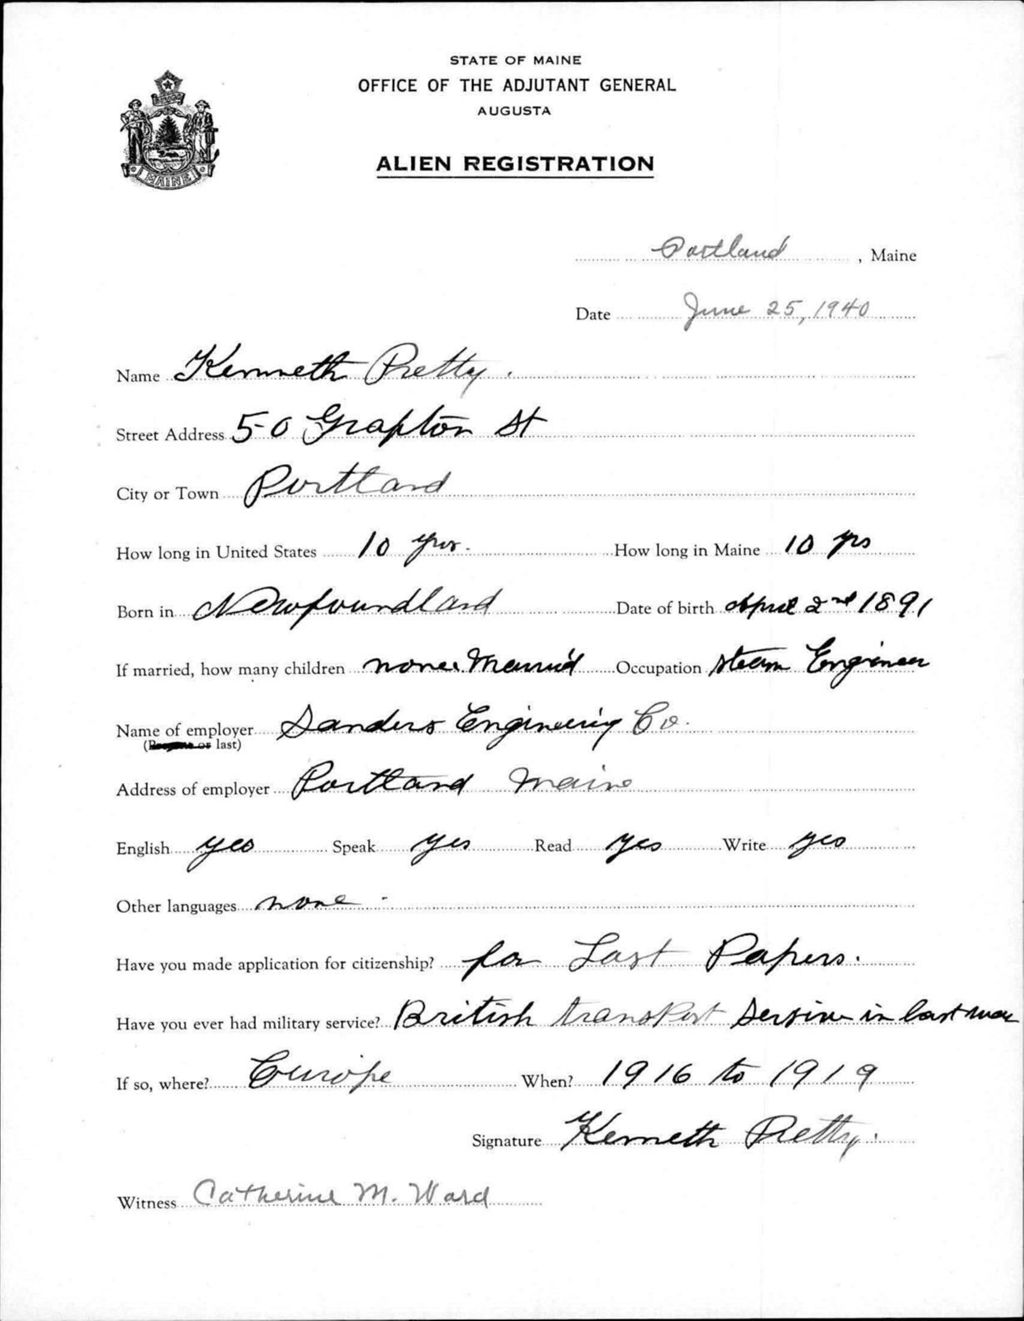 STATE OF MAINE
OFFICE OF THE ADJUTANT GENERAL
AUGUSTA
ALIEN REGISTRATION
MAINE
Portland, Maine
Date June 25, 1940
Name Kenneth Pretty.
Street Address 50 Grafton St
City or Town Portland
How long in United States 10 yrs. How long in Maine 10 yrs
Born in Newfoundland Date of birth April 2nd 1891
If married, how many children none. Married Occupation Steam Engineer
Name of employer Sanders Engineering Co.
(or last)
Address of employer Portland Maine
English yes Speak yes Read yes Write yes
Other languages none -
Have you made application for citizenship? for Last Papers.
Have you ever had military service? British transport Service in last war
If so, where? Europe When? 1916 to 1919
Signature Kenneth Pretty.
Witness Catherine M. Ward